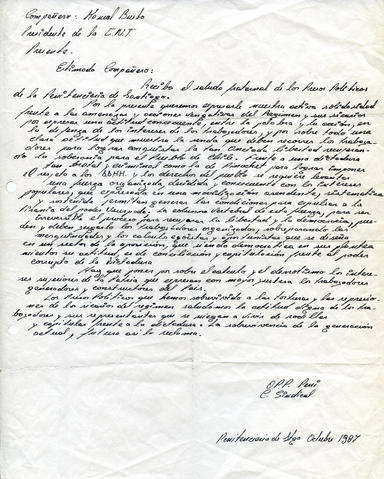 Compañero: Manuel Busto
Presidente de la C.N.T
Presente.
Estimado Compañero:
Reciba el saludo fraternal de los Presos Políticos
de la Penitenciaria de Santiago.
Por la presente queremos expresarle nuestra activa solidaridad
frente a las amenazas y acciones vengativas del Regimen y sus sicarios
por expresar una actitud consecuente, entre la palabra y la acción, en
la defensa de los intereses de los trabajadores, y por sobre todo una
clara actitud que muestra la senda que deben recorrer los trabaja-
dores para lograr conquistar la tan ansiada libertad recuperan-
do la soberanía para el Pueblo de Chile. Frente a una dictadura
tan brutal y criminal como la de Pinochet para lograr imponer
el respeto a los DDHH. y los derechos del pueblo se requiere levantar
una fuerza organizada, decidida, y consecuente con los intereses
populares que expresada en una movilización ascendente, sistematica
y sostenida permitan generar las condiciones para expulsar a la
tiranía del poder usurpado; la columna vertebral de esta fuerza, para ser
irreversible el proceso para recuperar la libertad y la democracia, pue-
den y deben serlo los trabajadores organizados, sobrepasando las
mezquindades y los calculos egoístas y oportunistas que se diseña
en un sector de la oposición, que ni es democratica en sus plantea-
mientos su actitud, es de conciliación y capitulación frente al poder
corrupto de la Dictadura
Hay que poner por sobre el calculo y el derrotismo los intere-
ses superiores de la Patria que expresan con mayor justeza los trabajadores
generadores y constructores del País.
Los Presos Políticos que hemos sobrevivido a las torturas y las represio-
nes de los sicarios del regimen saludamos la actitud digna de los tra-
bajadores y sus representantes que se niegan a vivir de rodillas
y capitular frente a la dictadura. La sobrevivencia de la generación
actual, y futura así lo reclama.
O.P.P. Peni
C. Sindical
Penitenciaria de Stgo Octubre 1987